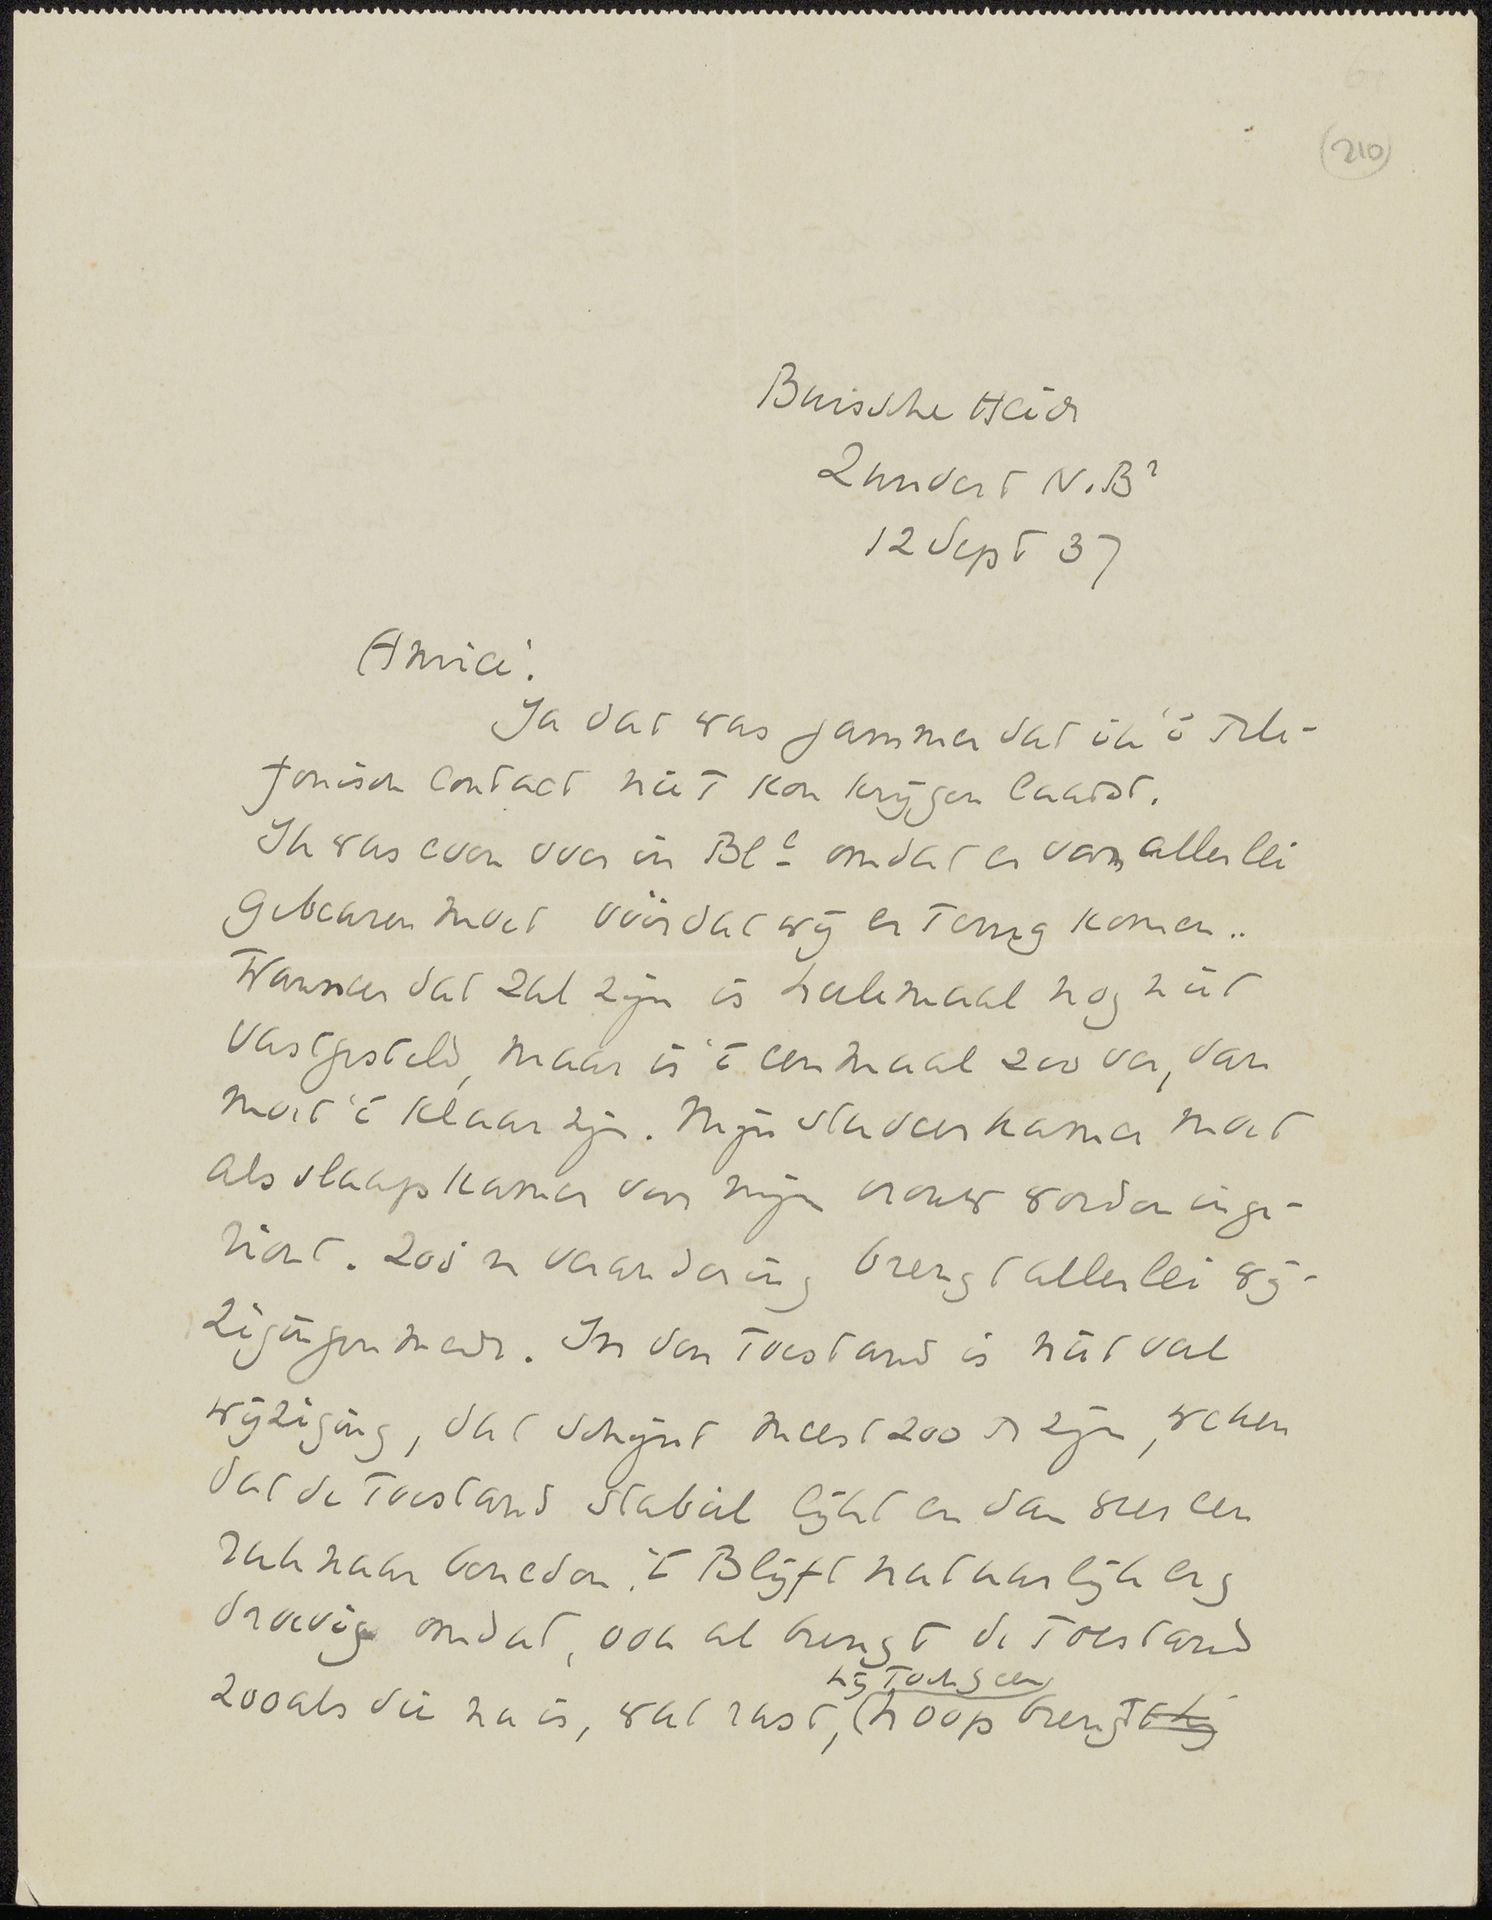 (210)
Buissche Heide
Zundert N.Bt
12 Sept 37
Amice!
Ja dat was jammer dat ik 't tele-
fonisch contact niet kon krijgen laatst.
Ik was even over in Bl. omdat er van allerlei
gebeuren moet vóórdat wij er terug komen..
Wanneer dat zal zijn is heelemaal nog niet
vastgesteld, maar is 't eenmaal zoo ver, dan
moet 't klaar zijn. Mijn studeerkamer moet
als slaapkamer voor mijn vrouw worden inge-
richt. Zoo'n verandering brengt allerlei wij-
zigingen mede. In den toestand is niet veel
wijziging, dat schijnt meest zoo te zijn, weken
dat de toestand stabiel lijkt en dan weer een
ruk naar beneden. 't Blijft natuurlijk erg
droevig omdat, ook al brengt de toestand
hij toch geen
zooals die nu is, wat rust, (hoop brengt hij